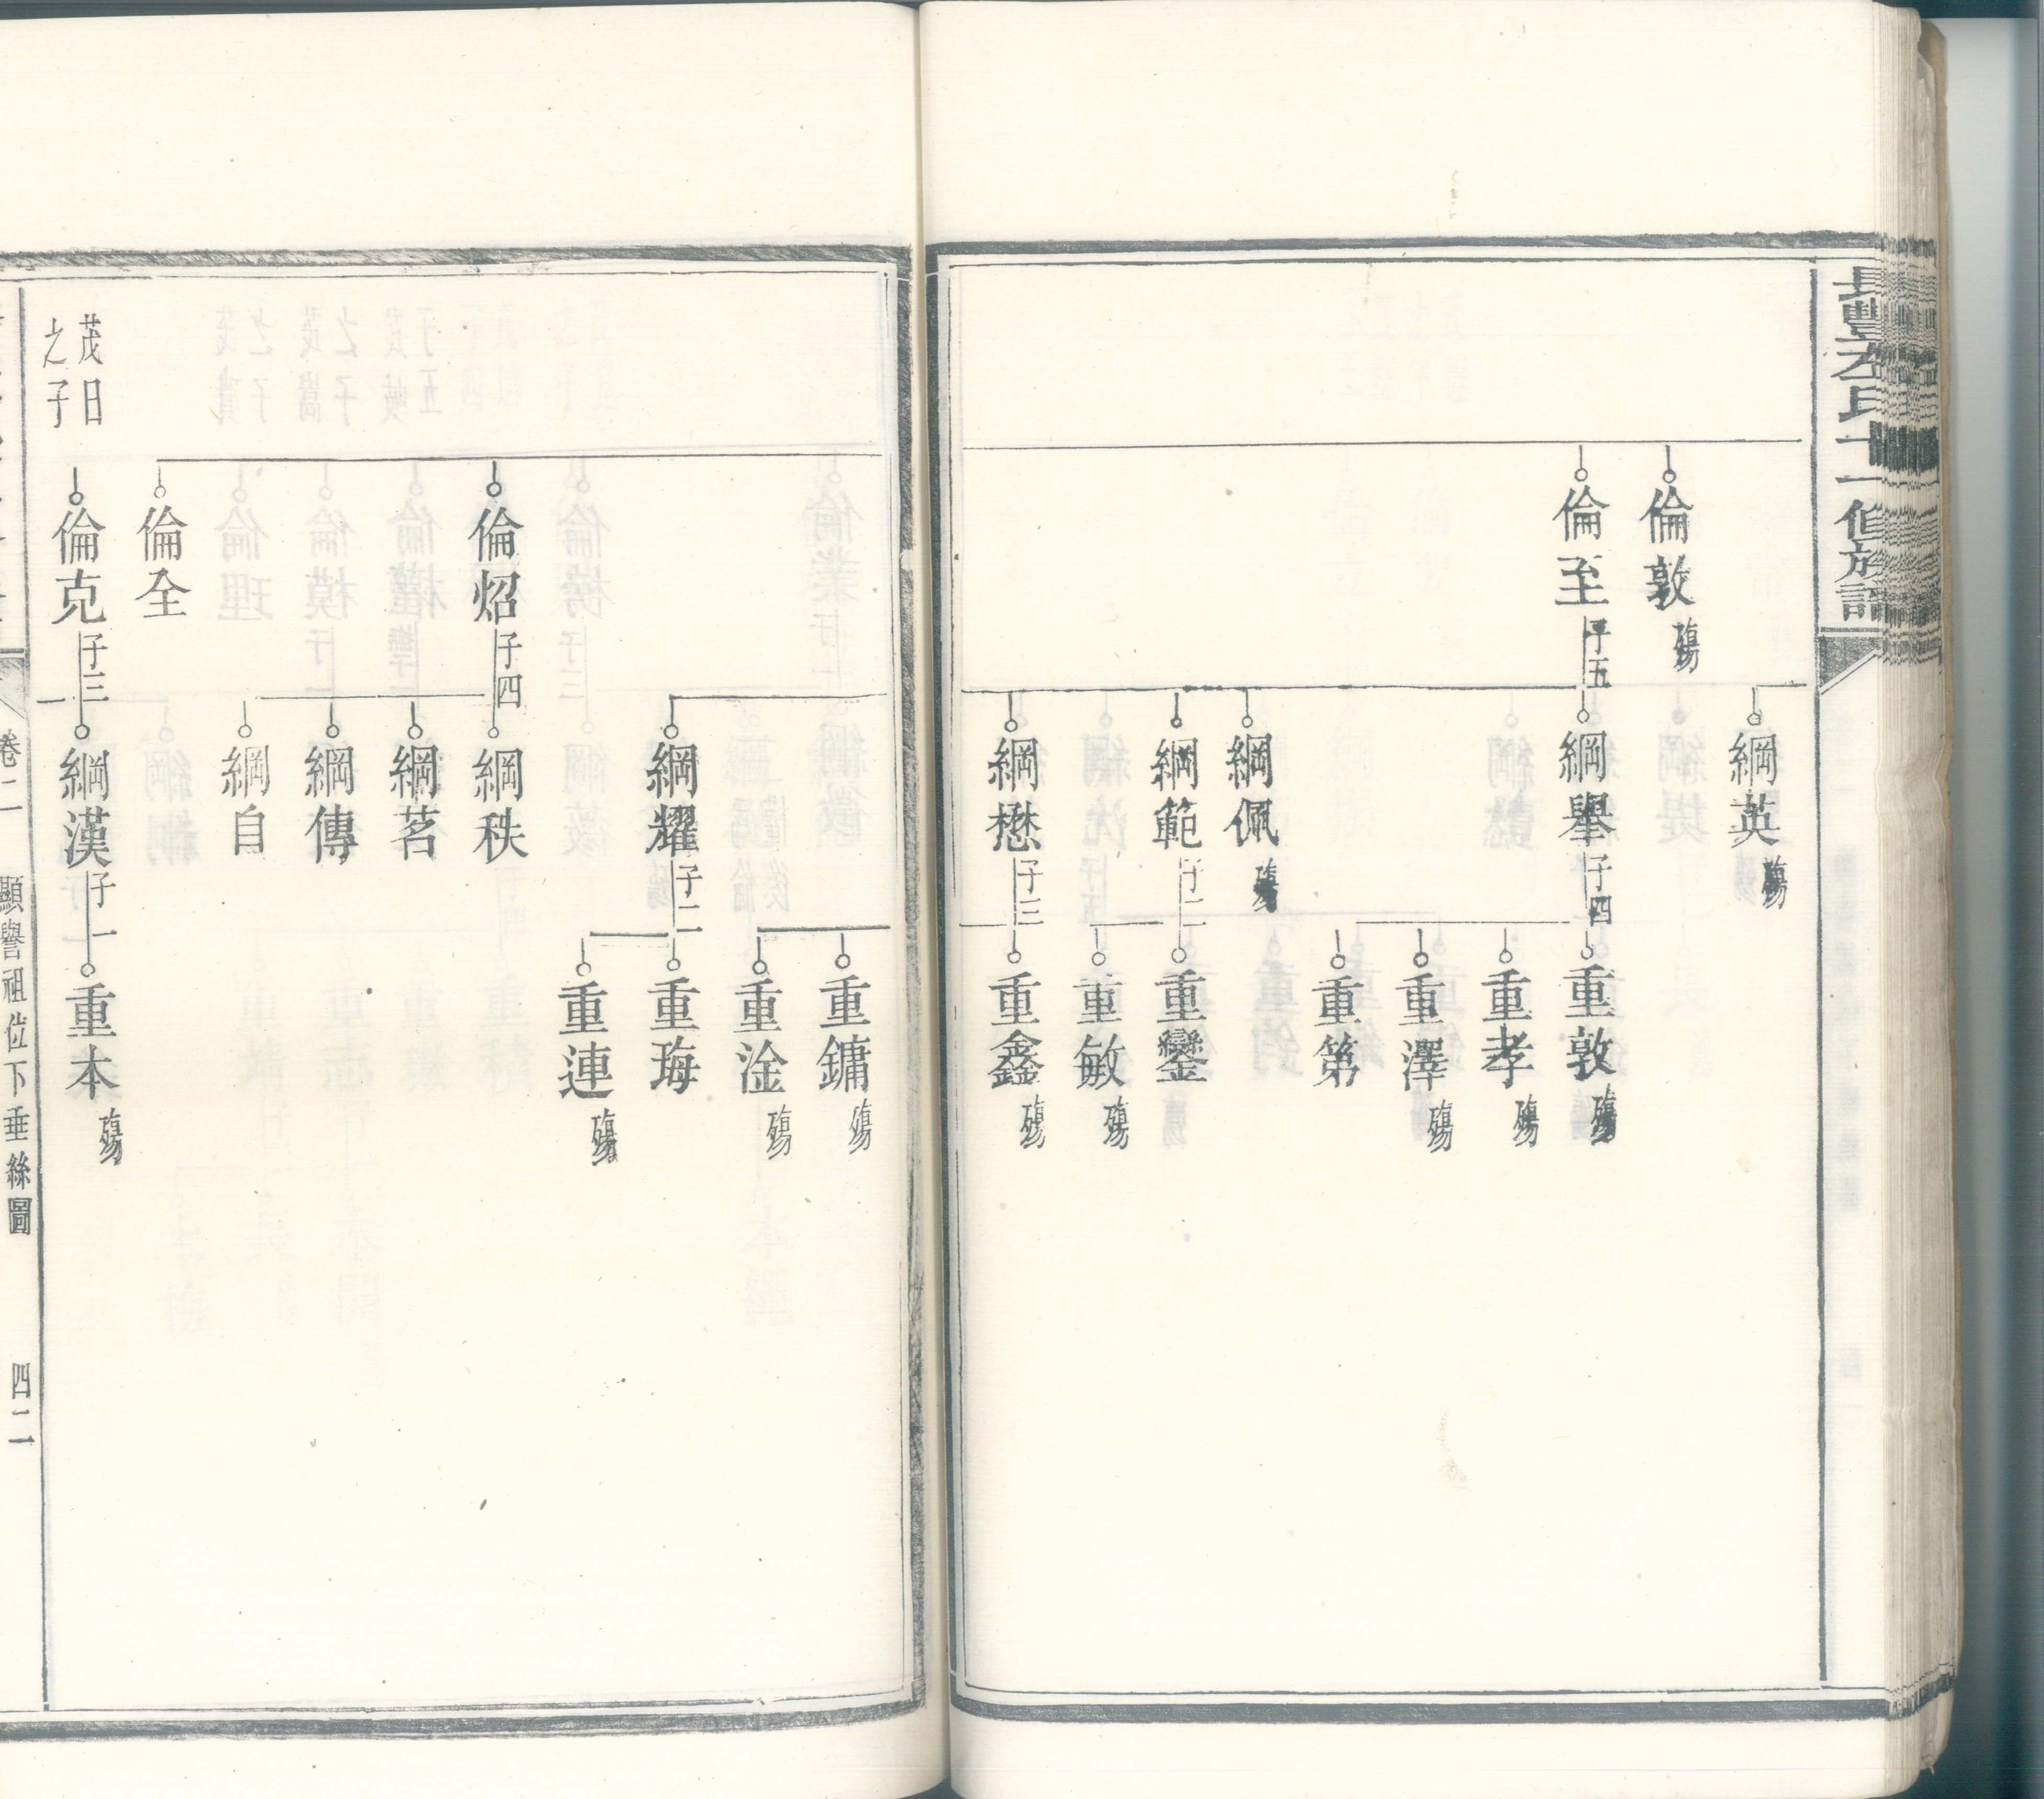 長豐李氏十一修族譜
倫敦
殤
倫至
子五
綱英
殤
綱舉
子四
綱佩
殤
綱範
子二
綱懋
子三
重敦
殤
重孝
殤
重澤
殤
重第
重鑾
重敏
殤
重鑫
殤
倫炤
子四
倫全
茂日
之子
倫克
子三
綱耀
子二
綱秩
綱茗
綱傳
綱自
綱漢
子一
重鏞
殤
重淦
殤
重海
重連
殤
重本
殤
卷二
顯譽祖位下垂絲圖
四二